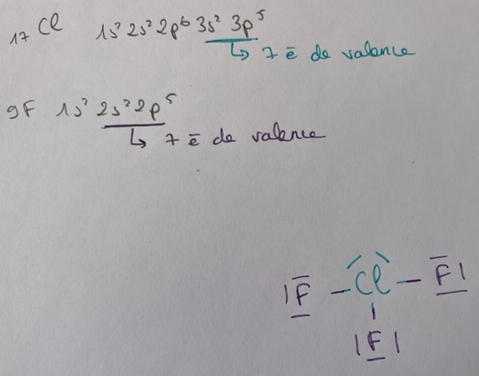 ₁₇Cl 1s² 2s² 2p⁶ 3s² 3p⁵
↳ 7 ē de valence
₉F 1s² 2s² 2p⁵
↳ 7 ē de valence
|F̲̅ — Cl — F̲̅|
|F̲|